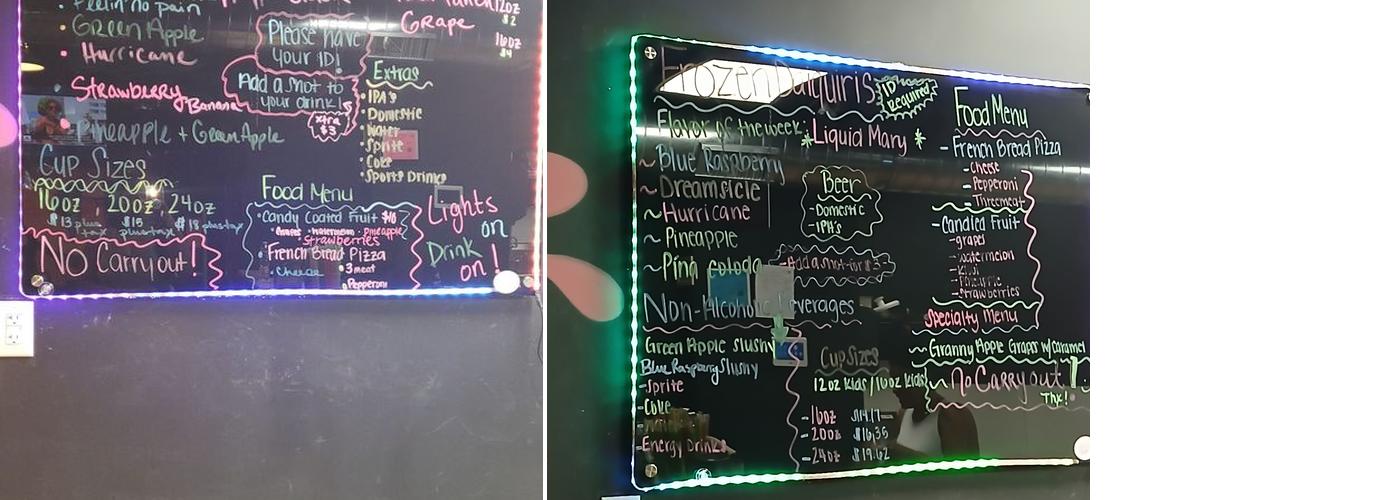 Feelin' no pain
Green Apple
Hurricane
Strawberry Banana
Pineapple + Green Apple
Please have
your ID!
Add a shot to
your drink!
xtra
$3
Grape
12oz
$2
16oz
$4
Extras
IPA's
Domestic
Water
Sprite
Coke
Sports Drinks
Cup Sizes
16oz 20oz 24oz
$13 plus tax $18 plus tax
No Carryout!
Food Menu
Candy Coated Fruit $10
Grapes watermelon pineapple
strawberries
French Bread Pizza
Cheese
3 meat
Pepperoni
Lights
on
Drink
on!
Frozen Daiquiris
ID
Required!
Flavor of the week: Liquid Mary
~ Blue Raspberry
~ Dreamsicle
~ Hurricane
~ Pineapple
~ Piña colada
Beer
- Domestic
- IPA's
- Add a shot for $3
Non-Alcoholic Beverages
Green Apple Slushy
Blue Raspberry Slushy
- Sprite
- Coke
- Energy Drinks
Cup Sizes
12oz kids / 16oz kids
- 16oz $14.17
- 20oz $16.35
- 24oz $19.62
Food Menu
- French Bread Pizza
- Cheese
- Pepperoni
- Threemeat
- Candied Fruit
- grapes
- watermelon
- Kiwi
- Pineapple
- Strawberries
Specialty Menu
~ Granny Apple Grapes w/caramel
~ No Carry out!
Thx!